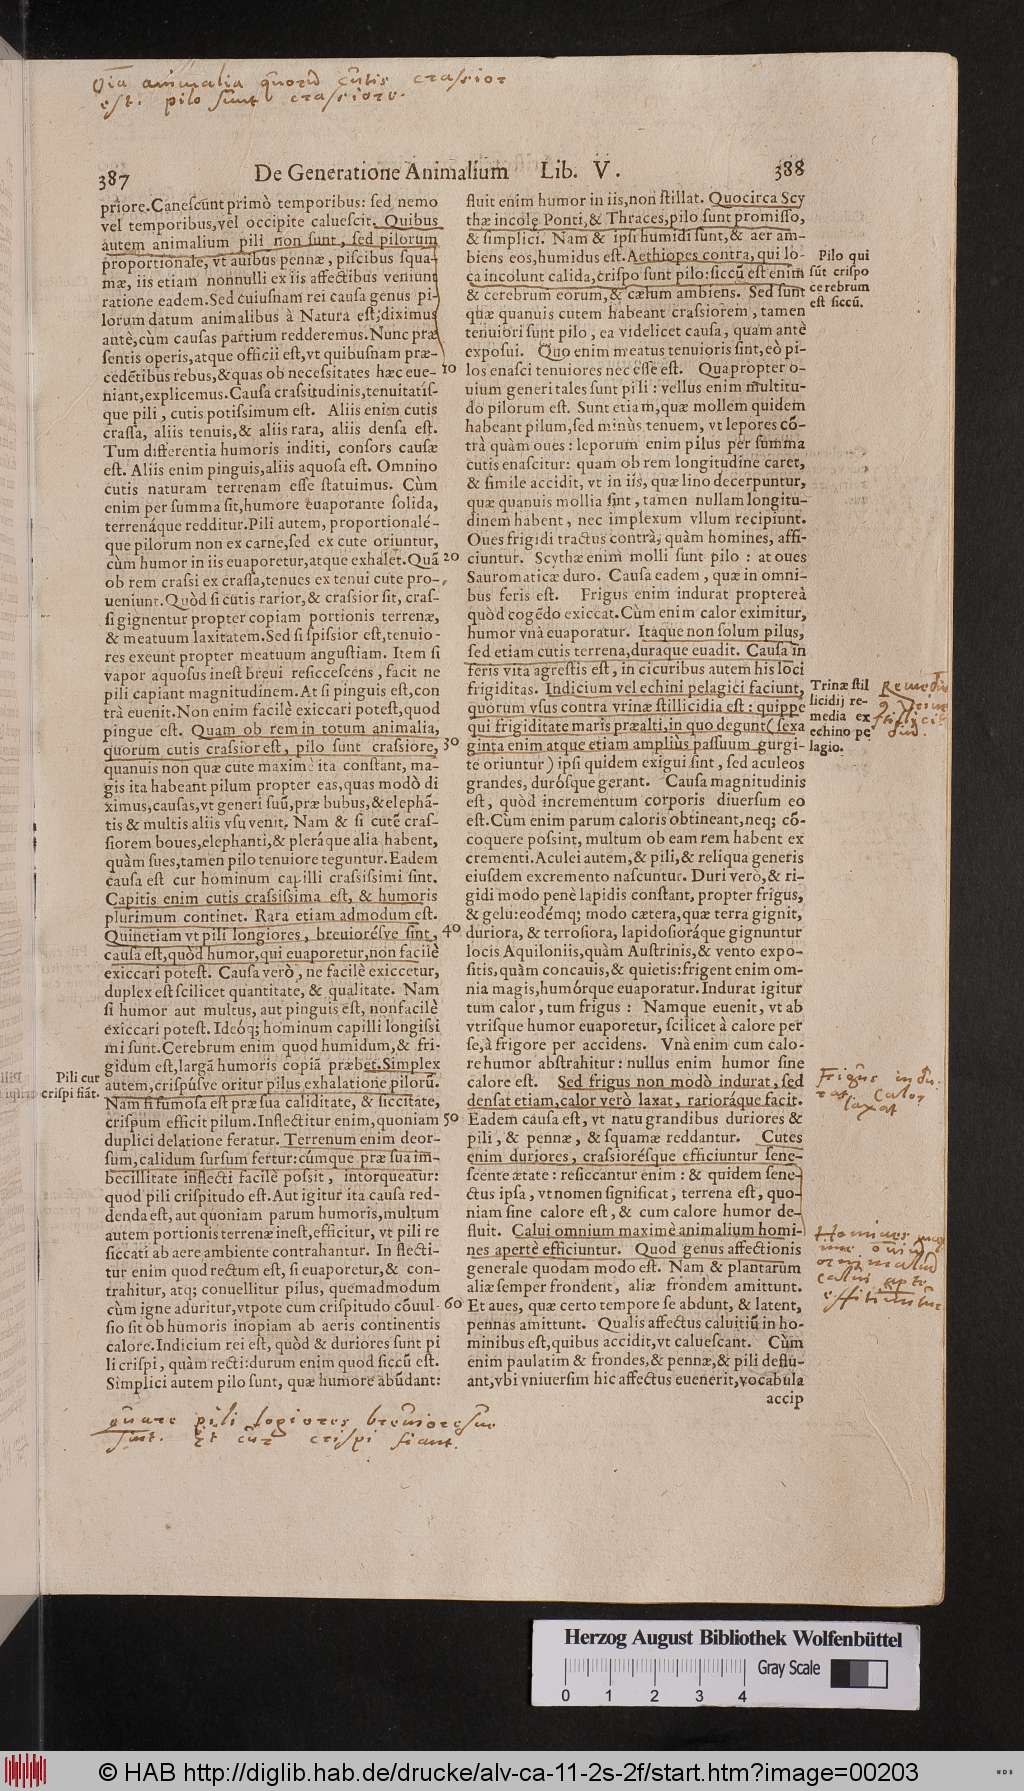 Oīa animalia quorū cutis crassior
est. pilo sunt crassiore.
387 De Generatione Animalium Lib. V. 388
priore. Canescūnt primò temporibus: sed nemo
vel temporibus, vel occipite caluescit. Quibus
autem animalium pili non sunt, sed pilorum
proportionale, vt auibus pennæ, piscibus squa-
mæ, iis etiam nonnulli ex iis affectibus veniunt
ratione eadem. Sed cuiusnam rei causa genus pi-
lorum datum animalibus à Natura est, diximus
antè, cùm causas partium redderemus. Nunc præ
sentis operis, atque officii est, vt quibusnam præ-
cedētibus rebus, & quas ob necessitates hæc eue-
niant, explicemus. Causa crassitudinis, tenuitatis-
que pili, cutis potissimum est. Aliis enim cutis
crassa, aliis tenuis, & aliis rara, aliis densa est.
Tum differentia humoris inditi, consors causæ
est. Aliis enim pinguis, aliis aquosa est. Omnino
cutis naturam terrenam esse statuimus. Cùm
enim per summa sit, humore euaporante solida,
terrenáque redditur. Pili autem, proportionalé-
que pilorum non ex carne, sed ex cute oriuntur,
cùm humor in iis euaporetur, atque exhalet. Quā
ob rem crassi ex crassa, tenues ex tenui cute pro-
ueniunt. Quòd si cutis rarior, & crassior sit, cras-
si gignentur propter copiam portionis terrenæ,
& meatuum laxitatem. Sed si spissior est, tenuio-
res exeunt propter meatuum angustiam. Item si
vapor aquosus inest breui resiccescens, facit ne
pili capiant magnitudinem. At si pinguis est, con
trà euenit. Non enim facilè exiccari potest, quod
pingue est. Quam ob rem in totum animalia,
quorum cutis crassior est, pilo sunt crassiore,
quanuis non quæ cute maximè ita constant, ma-
gis ita habeant pilum propter eas, quas modò di
ximus, causas, vt generi suū, præ bubus, & elephā-
tis & multis aliis vsu venit. Nam & si cutē cras-
siorem boues, elephanti, & pleráque alia habent,
quàm sues, tamen pilo tenuiore teguntur. Eadem
causa est cur hominum capilli crassissimi sint.
Capitis enim cutis crassissima est, & humoris
plurimum continet. Rara etiam admodum est.
Quinetiam vt pili longiores, breuiorésve sint,
causa est, quòd humor, qui euaporetur, non facilè
exiccari potest. Causa verò, ne facilè exiccetur,
duplex est scilicet quantitate, & qualitate. Nam
si humor aut multus, aut pinguis est, non facilè
exiccari potest. Ideóq; hominum capilli longissi
mi sunt. Cerebrum enim quod humidum, & fri-
gidum est, largā humoris copiā præbet. Simplex
autem, crispúsve oritur pilus exhalatione pilorū.
Nam si fumosa est præ sua caliditate, & siccitate,
crispum efficit pilum. Inflectitur enim, quoniam
duplici delatione feratur. Terrenum enim deor-
sum, calidum sursum fertur: cúmque præ sua im-
becillitate inflecti facilè possit, intorqueatur:
quod pili crispitudo est. Aut igitur ita causa red-
denda est, aut quoniam parum humoris, multum
autem portionis terrenæ inest, efficitur, vt pili re
siccati ab aere ambiente contrahantur. In flecti-
tur enim quod rectum est, si euaporetur, & con-
trahitur, atq; conuellitur pilus, quemadmodum
cùm igne aduritur, vtpote cum crispitudo cōuul-
sio sit ob humoris inopiam ab aeris continentis
calore. Indicium rei est, quòd & duriores sunt pi
li crispi, quàm recti: durum enim quod siccū est.
Simplici autem pilo sunt, quæ humore abūdant:
Pili cur
crispi fiāt.
10
20
30
40
50
60
fluit enim humor in iis, non stillat. Quocirca Scy
thæ incolę Ponti, & Thraces, pilo sunt promisso,
& simplici. Nam & ipsi humidi sunt, & aer am-
biens eos, humidus est. Aethiopes contra, qui lo-
ca incolunt calida, crispo sunt pilo: siccū est enim
& cerebrum eorum, & cælum ambiens. Sed sunt
quæ quanuis cutem habeant crassiorem, tamen
tenuiori sunt pilo, ea videlicet causa, quam antè
exposui. Quo enim meatus tenuioris sint, eò pi-
los enasci tenuiores necesse est. Quapropter o-
uium generi tales sunt pili: vellus enim multitu-
do pilorum est. Sunt etiam, quæ mollem quidem
habeant pilum, sed minùs tenuem, vt lepores cō-
trà quàm oues: leporum enim pilus per summa
cutis enascitur: quam ob rem longitudine caret,
& simile accidit, vt in iis, quæ lino decerpuntur,
quæ quanuis mollia sint, tamen nullam longitu-
dinem habent, nec implexum vllum recipiunt.
Oues frigidi tractus contrà, quàm homines, affi-
ciuntur. Scythæ enim molli sunt pilo: at oues
Sauromaticæ duro. Causa eadem, quæ in omni-
bus feris est. Frigus enim indurat proptereà
quòd cogēdo exiccat. Cùm enim calor eximitur,
humor vnà euaporatur. Itaque non solum pilus,
sed etiam cutis terrena, duraque euadit. Causa in
feris vita agrestis est, in cicuribus autem his loci
frigiditas. Indicium vel echini pelagici faciunt,
quorum vsus contra vrinæ stillicidia est: quippe
qui frigiditate maris præalti, in quo degunt (sexa
ginta enim atque etiam ampliùs passuum gurgi-
te oriuntur) ipsi quidem exigui sint, sed aculeos
grandes, durósque gerant. Causa magnitudinis
est, quòd incrementum corporis diuersum eo
est. Cùm enim parum caloris obtineant, neq; cō-
coquere possint, multum ob eam rem habent ex
crementi. Aculei autem, & pili, & reliqua generis
eiusdem excremento nascuntur. Duri verò, & ri-
gidi modo penè lapidis constant, propter frigus,
& gelu: eodémq; modo cætera, quæ terra gignit,
duriora, & terrosiora, lapidosioráque gignuntur
locis Aquiloniis, quàm Austrinis, & vento expo-
sitis, quàm concauis, & quietis: frigent enim om-
nia magis, humórque euaporatur. Indurat igitur
tum calor, tum frigus: Namque euenit, vt ab
vtrisque humor euaporetur, scilicet à calore per
se, à frigore per accidens. Vnà enim cum calo-
re humor abstrahitur: nullus enim humor sine
calore est. Sed frigus non modò indurat, sed
densat etiam, calor verò laxat, rarioráque facit.
Eadem causa est, vt natu grandibus duriores &
pili, & pennæ, & squamæ reddantur. Cutes
enim duriores, crassiorésque efficiuntur sene-
scente ætate: resiccantur enim: & quidem sene-
ctus ipsa, vt nomen significat, terrena est, quo-
niam sine calore est, & cum calore humor de-
fluit. Calui omnium maximè animalium homi-
nes apertè efficiuntur. Quod genus affectionis
generale quodam modo est. Nam & plantarum
aliæ semper frondent, aliæ frondem amittunt.
Et aues, quæ certo tempore se abdunt, & latent,
pennas amittunt. Qualis affectus caluitiū in ho-
minibus est, quibus accidit, vt caluescant. Cùm
enim paulatim & frondes, & pennæ, & pili deflu-
ant, vbi vniuersim hic affectus euenerit, vocabula
accip
Pilo qui
sūt crispo
cerebrum
est siccū.
Trinæ stil
licidij re-
media ex
echino pe
lagio.
Remediū
Frigus indu-
rat Calor
laxat
Homines
omniū
animaliū
calui aperte
efficiuntur
quare pili logiores breuioresue
sint. Et cur crispi fiant.
Herzog August Bibliothek Wolfenbüttel
Gray Scale
0 1 2 3 4
© HAB http://diglib.hab.de/drucke/alv-ca-11-2s-2f/start.htm?image=00203